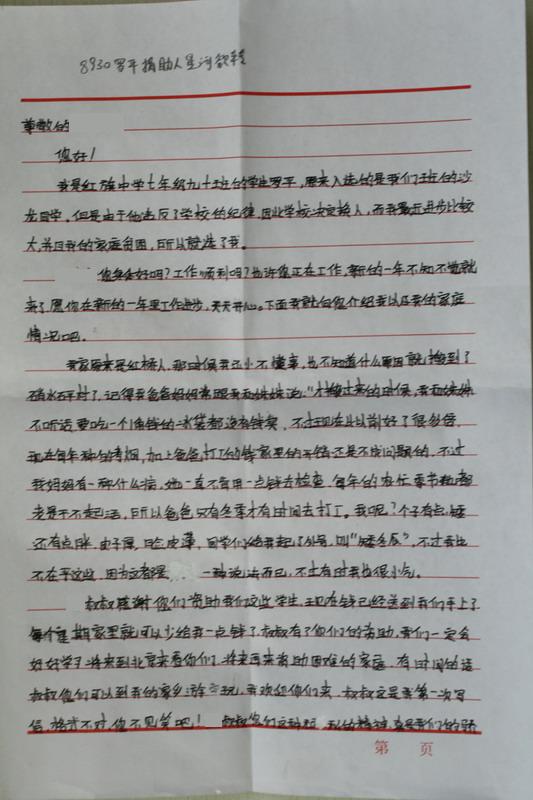 8930罗平捐助人星河
尊敬的
您好！
我是红旗中学七年级九十班的学生罗平，原来入选的是我们班的沙
发同学，但是由于他违反了学校的纪律，因此学校决定换人，而我最近进步比较
大，并且我的家庭贫困，所以就选了我。
您身体好吗？工作顺利吗？也许您正在工作，新的一年不知不觉就
来了，愿你在新的一年里工作进步，天天开心。下面我就向您介绍我以及我的家庭
情况吧。
我家原来是红桥人，那时候我还小不懂事，也不知道什么原因就搬到了
硝水坪村了，记得我爸爸妈妈常跟我和妹妹说："才搬过来的时候，我和妹妹
不听话要吃一个1角钱的冰袋都没有钱买，不过现在比以前好了很多倍，
现在每年种的烤烟，加上爸爸打工的钱家里的开销还是不成问题的，不过
我妈妈有一种什么病，她一直不管用一点钱去检查，每年的农忙季节她都
老是干不起活，所以爸爸只有冬季才有时间去打工。我呢？个子有点矮
还有点胖，肉子厚，脸皮薄，同学们给我起了外号，叫"矮冬瓜"，不过我也
不在乎这些，因为这都是 一种说法而已，不过有时我也很小气。
叔叔感谢你们资助我们这些学生，现在钱已经送到我们手上了
每个星期家里就可以少给我一点钱了，叔叔有了你们的资助，我们一定会
好好学习将来到北京来看你们，将来再来资助困难的家庭，有时间的话
叔叔你们可以到我的家乡游玩，我欢迎你们来，叔叔这是我第一次写
信，格式不对，您不见笑吧！ 叔叔你们这种 的精神 是我们的骄
第 页